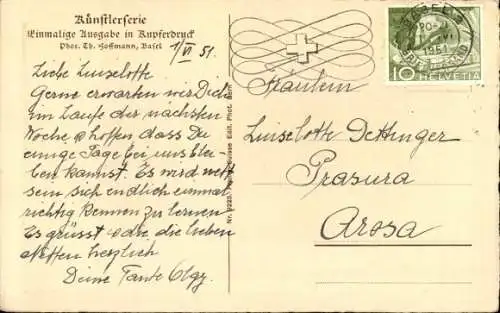 Künstlerserie
Einmalige Ausgabe in Kupferdruck
Phot. Th. Hoffmann, Basel
1/VI 51.
Liebe Luiselotte
Gerne erwarten wir Dich
im Laufe der nächsten
Woche & hoffen dass Du
einige Tage bei uns blei-
ben kannst. Es wird nett
sein sich endlich einmal
richtig kennen zu lernen
Es grüsst & die lieben
herzlich
Deine Tante Olga
BASEL 2
1951
10 HELVETIA
Fräulein
Luiselotte Dettinger
Prasura
Arosa